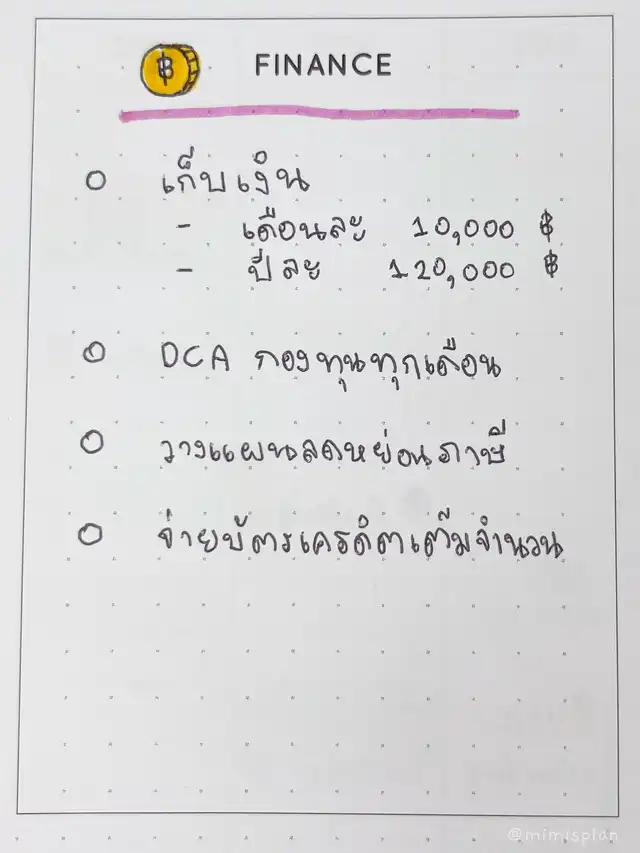 ฿ FINANCE
○ เก็บเงิน
- เดือนละ 10,000 ฿
- ปีละ 120,000 ฿
○ DCA กองทุนทุกเดือน
○ วางแผนลดหย่อนภาษี
○ จ่ายบัตรเครดิตเต็มจำนวน
@mimisplan